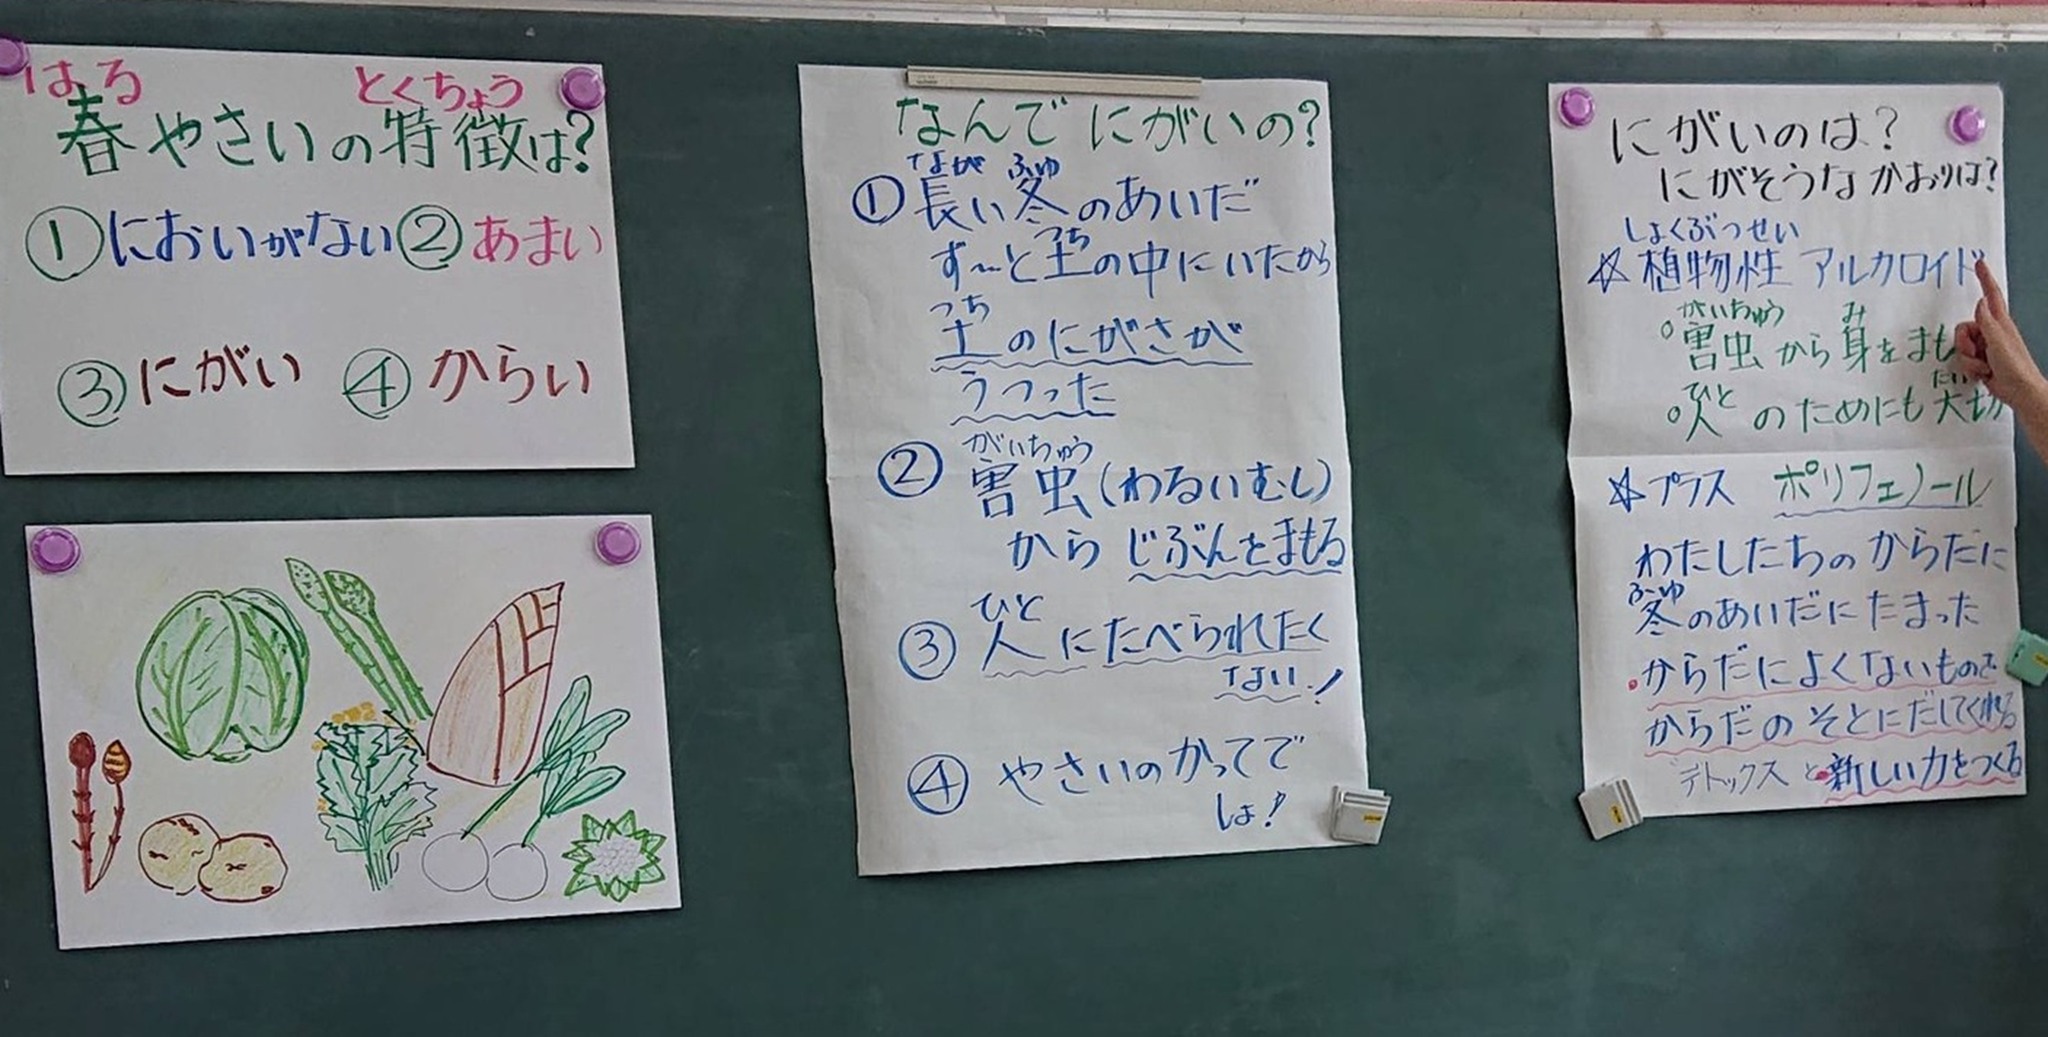 はる とくちょう
春やさいの特徴は?
①においがない ②あまい
③にがい ④からい
なんでにがいの?
なが ふゆ
①長い冬のあいだ
つち
ず〜と土の中にいたから
つち
土のにがさが
うつった
がいちゅう
②害虫(わるいむし)
からじぶんをまもる
ひと
③人にたべられたく
ない!
④やさいのかってで
しょ!
にがいのは?
にがそうなかおりは?
しょくぶつせい
☆植物性アルカロイド
がいちゅう み
○害虫から身をまも
ひと たい
○人のためにも大切
☆プラス ポリフェノール
わたしたちのからだに
ふゆ
冬のあいだにたまった
・からだによくないものを
からだのそとにだしてくれる
デトックスと・新しい力をつくる